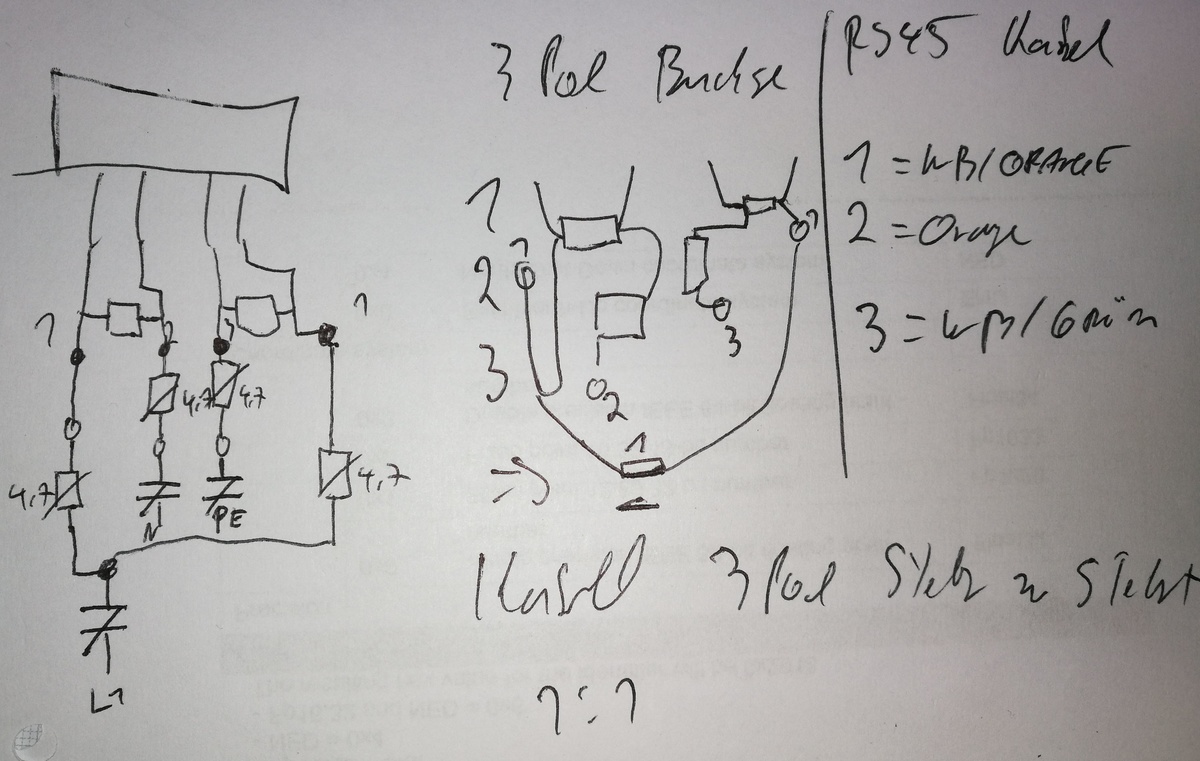 3 Pol Buchse
RJ45 Kabel
1 = WB/ORANGE
2 = Orange
3 = WB/Grün
1
2
3
1
1
3
2
1
1
2
3
1
4,7
4,7
4,7
4,7
N
PE
L1
Kabel 3 Pol
1:1